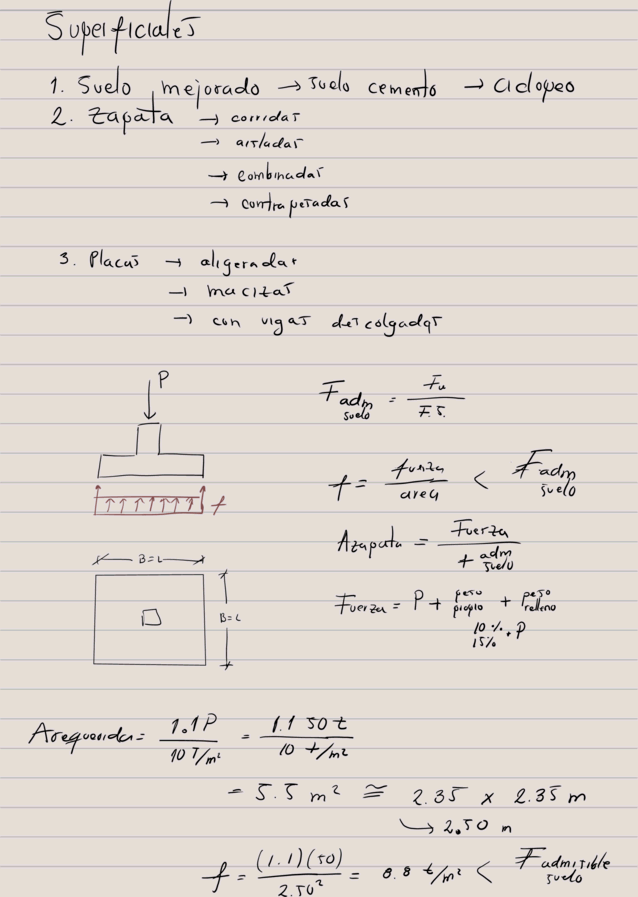 Superficiales
1. Suelo mejorado → suelo cemento → ciclopeo
2. Zapata → corridas
→ aisladas
→ combinadas
→ contrapesadas
3. Placas → aligeradas
→ macizas
→ con vigas descolgadas
P
F adm suelo = Fu / F.S.
f
f = fuerza / area < F adm suelo
Azapata = Fuerza / f adm suelo
B=L
B=L
Fuerza = P + peso propio + peso relleno
10 %. P
15%
Arequerida = 1.1P / 10 T/m² = 1.1 50 t / 10 t/m²
= 5.5 m² ≅ 2.35 x 2.35 m
↳ 2.50 m
f = (1.1)(50) / 2.50² = 8.8 t/m² < F admisible suelo